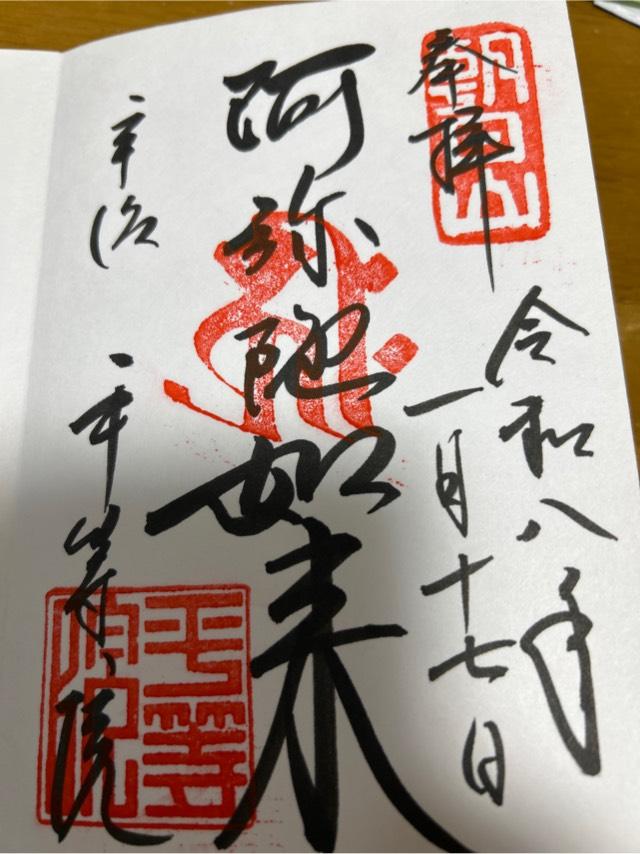 奉拝
朝日山
令和八年
一月十七日
阿弥陀如来
宇治
平等院
平等院印